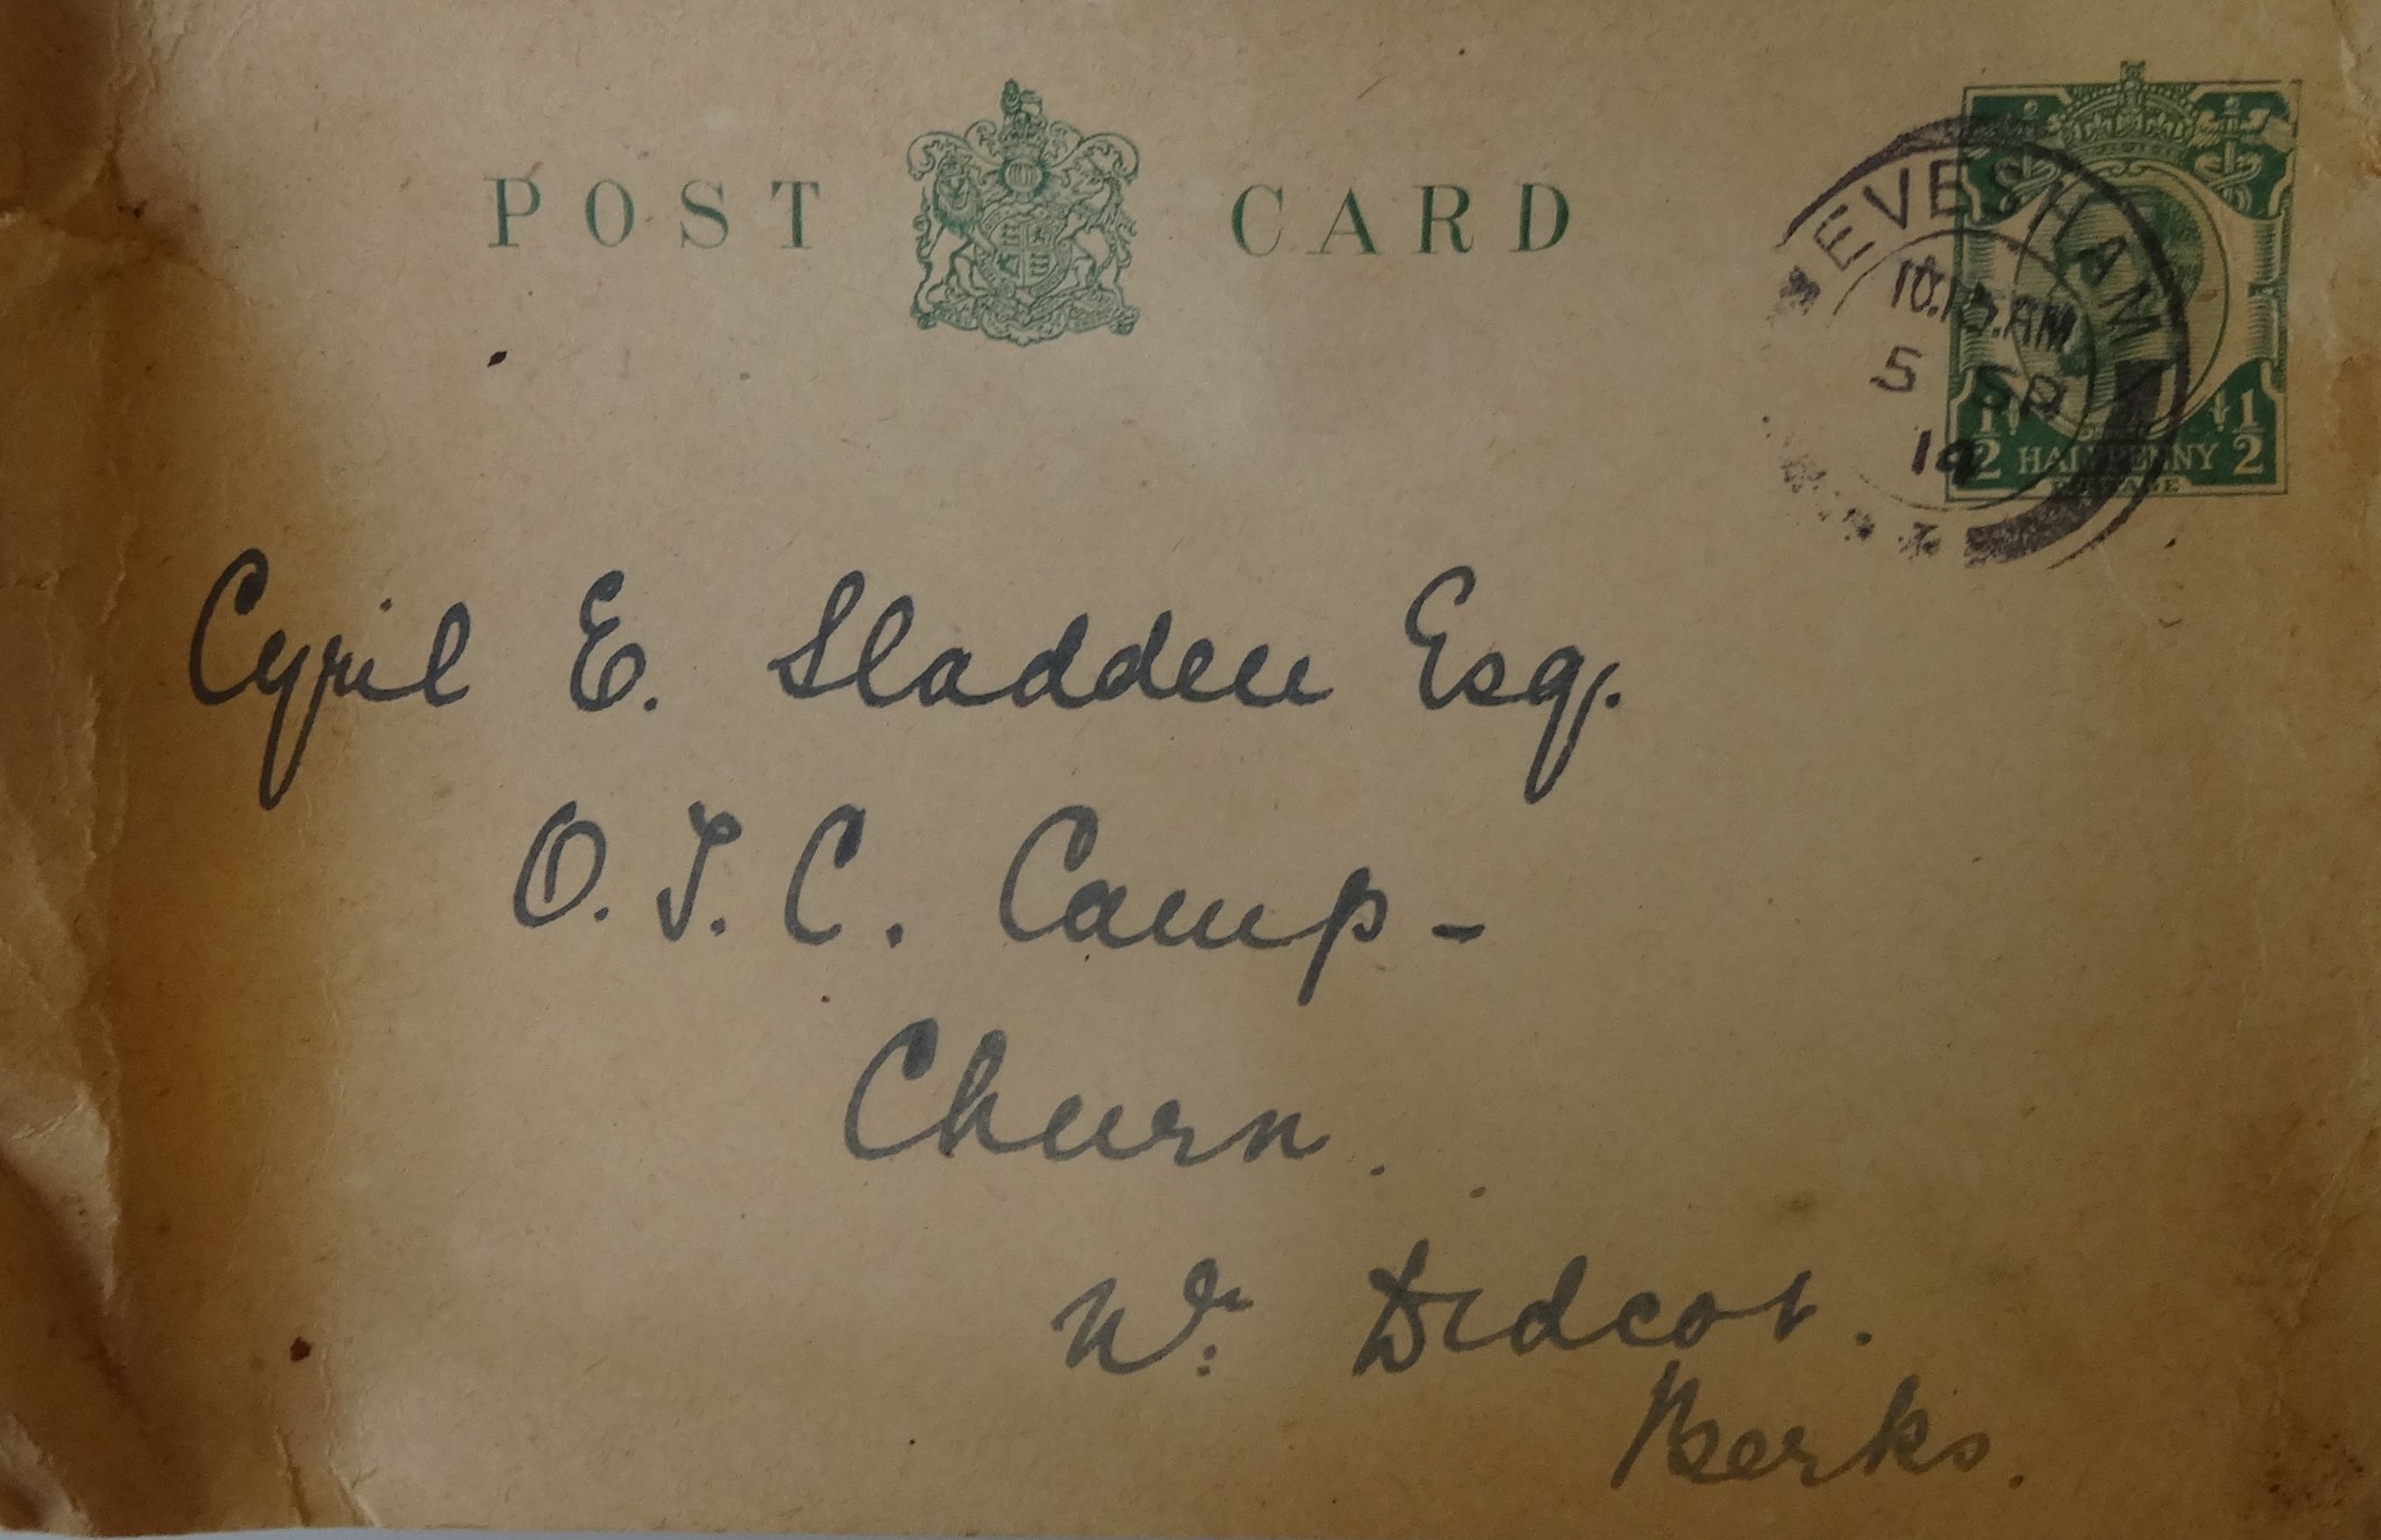 POST CARD
EVESHAM
10.15.AM
5 SP
1/2 HALFPENNY 1/2
POSTAGE
Cyril E. Sladden Esq.
O.T.C. Camp -
Churn.
Nr. Didcot.
Berks.